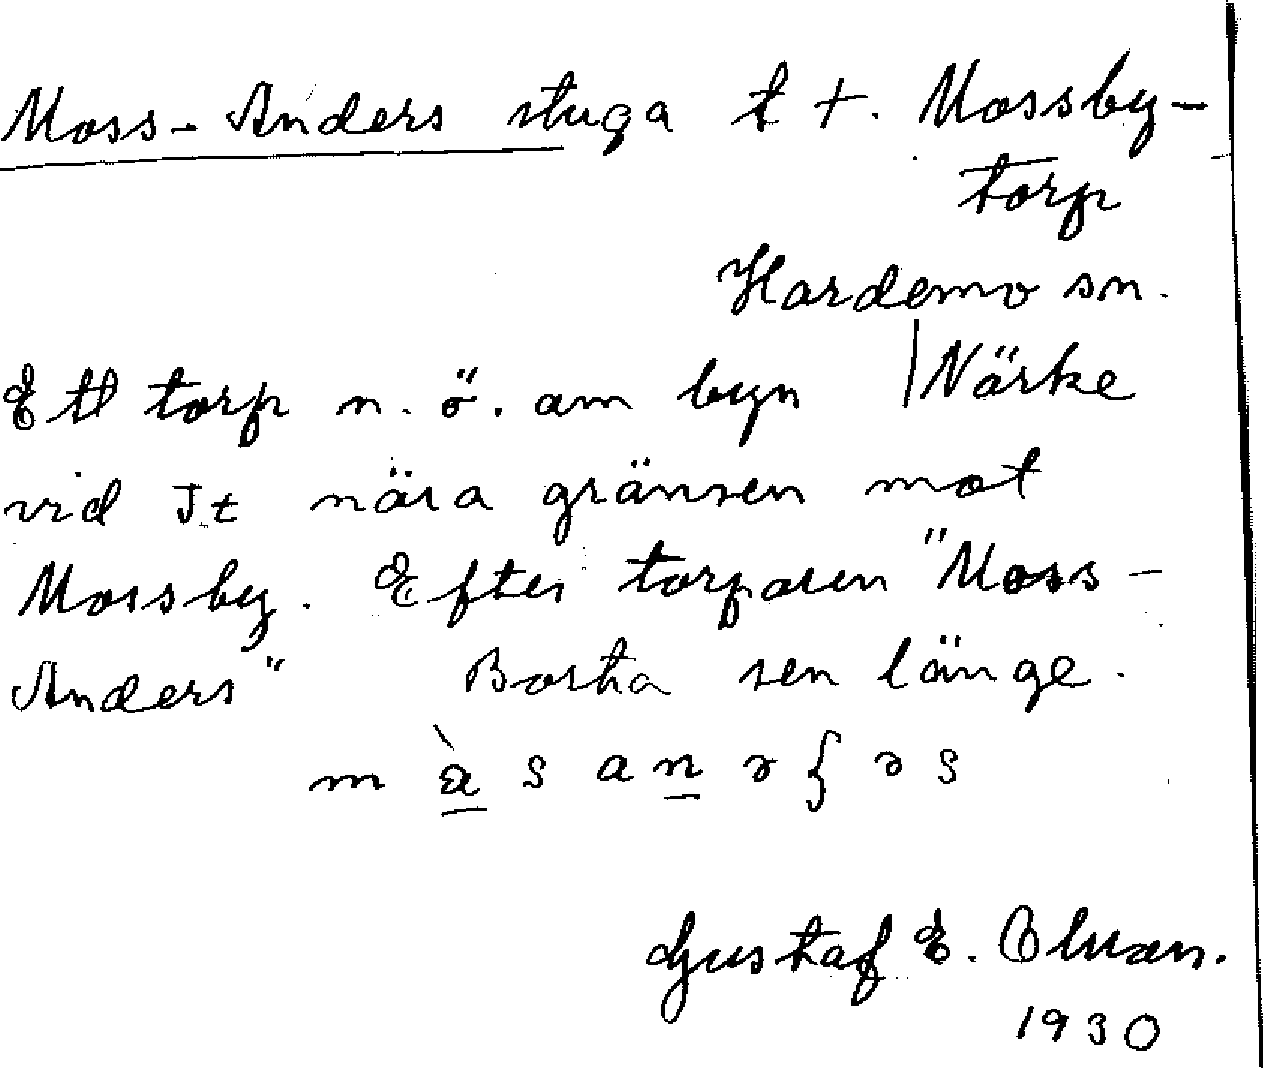 Moss-Anders stuga t t. Mossby-
torp
Hardemo sn.
Närke
Ett torp n. ö. om byn
vid It nära gränsen mot
Mossby. Efter torparen "Moss-
Anders" Borta sen länge.
1930
Gustaf E.